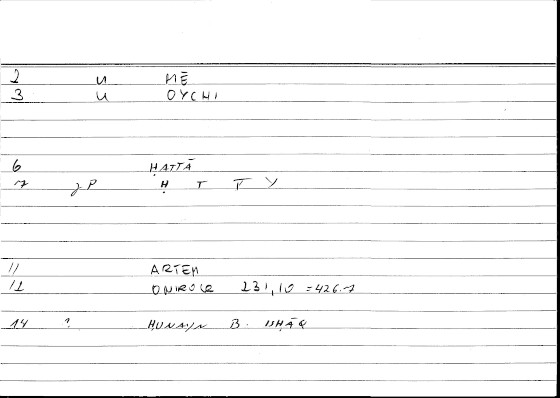 2 U MĒ
3 U OYCHI
6 ḤATTĀ
7 gP Ḥ T T Y
11 ARTEM
12 ONIROCR 231,10 = 426.7
14 ? ḤUNAYN B. ISḤĀQ